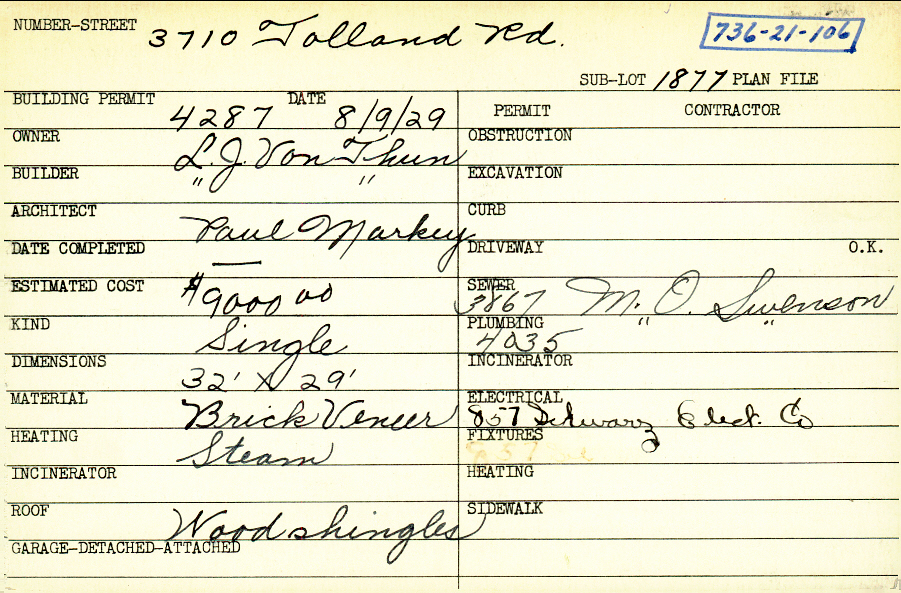 NUMBER-STREET 3710 Tolland Rd. 736-21-106
SUB-LOT 1877 PLAN FILE
BUILDING PERMIT 4287 DATE 8/9/29
PERMIT CONTRACTOR
OWNER L.J. Von Thun
OBSTRUCTION
BUILDER " "
EXCAVATION
ARCHITECT Paul Markey
CURB
DATE COMPLETED —
DRIVEWAY O.K.
ESTIMATED COST $9000 00
SEWER 3867 M. O. Swenson
KIND Single
PLUMBING 4035 " "
DIMENSIONS 32' X 29'
INCINERATOR
MATERIAL Brick Veneer
ELECTRICAL 857 Schwarz Elect. Co
HEATING Steam
FIXTURES
INCINERATOR
HEATING
ROOF Wood shingles
SIDEWALK
GARAGE-DETACHED-ATTACHED